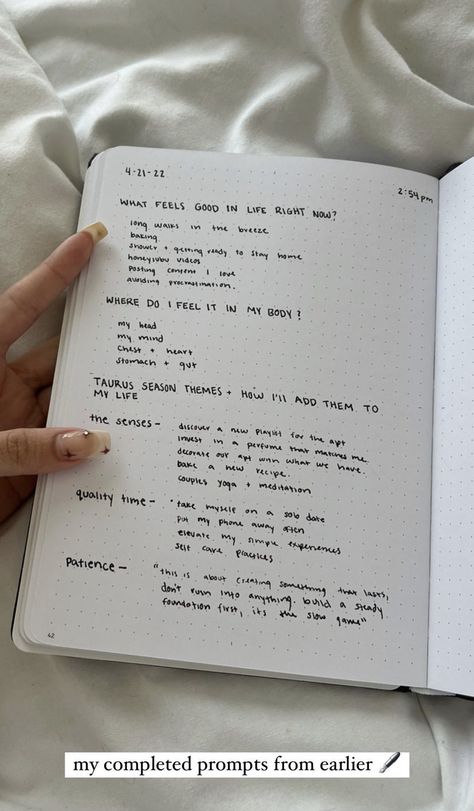 4-21-22
2:54pm
WHAT FEELS GOOD IN LIFE RIGHT NOW?
long walks in the breeze
baking.
shower + getting ready to stay home
honeysubu videos
posting content I love
avoiding procrastination.
WHERE DO I FEEL IT IN MY BODY?
my head
my mind
chest + heart
stomach + gut
TAURUS SEASON THEMES + HOW I'LL ADD THEM TO
MY LIFE
the senses - discover a new playlist for the apt
invest in a perfume that matches me
decorate our apt with what we have.
bake a new recipe.
couples yoga + meditation
quality time - take myself on a solo date
put my phone away often
elevate my simple experiences
self care practices
Patience - "this is about creating something that lasts,
don't rush into anything. build a steady
foundation first, it's the slow game"
42
my completed prompts from earlier 🖋️